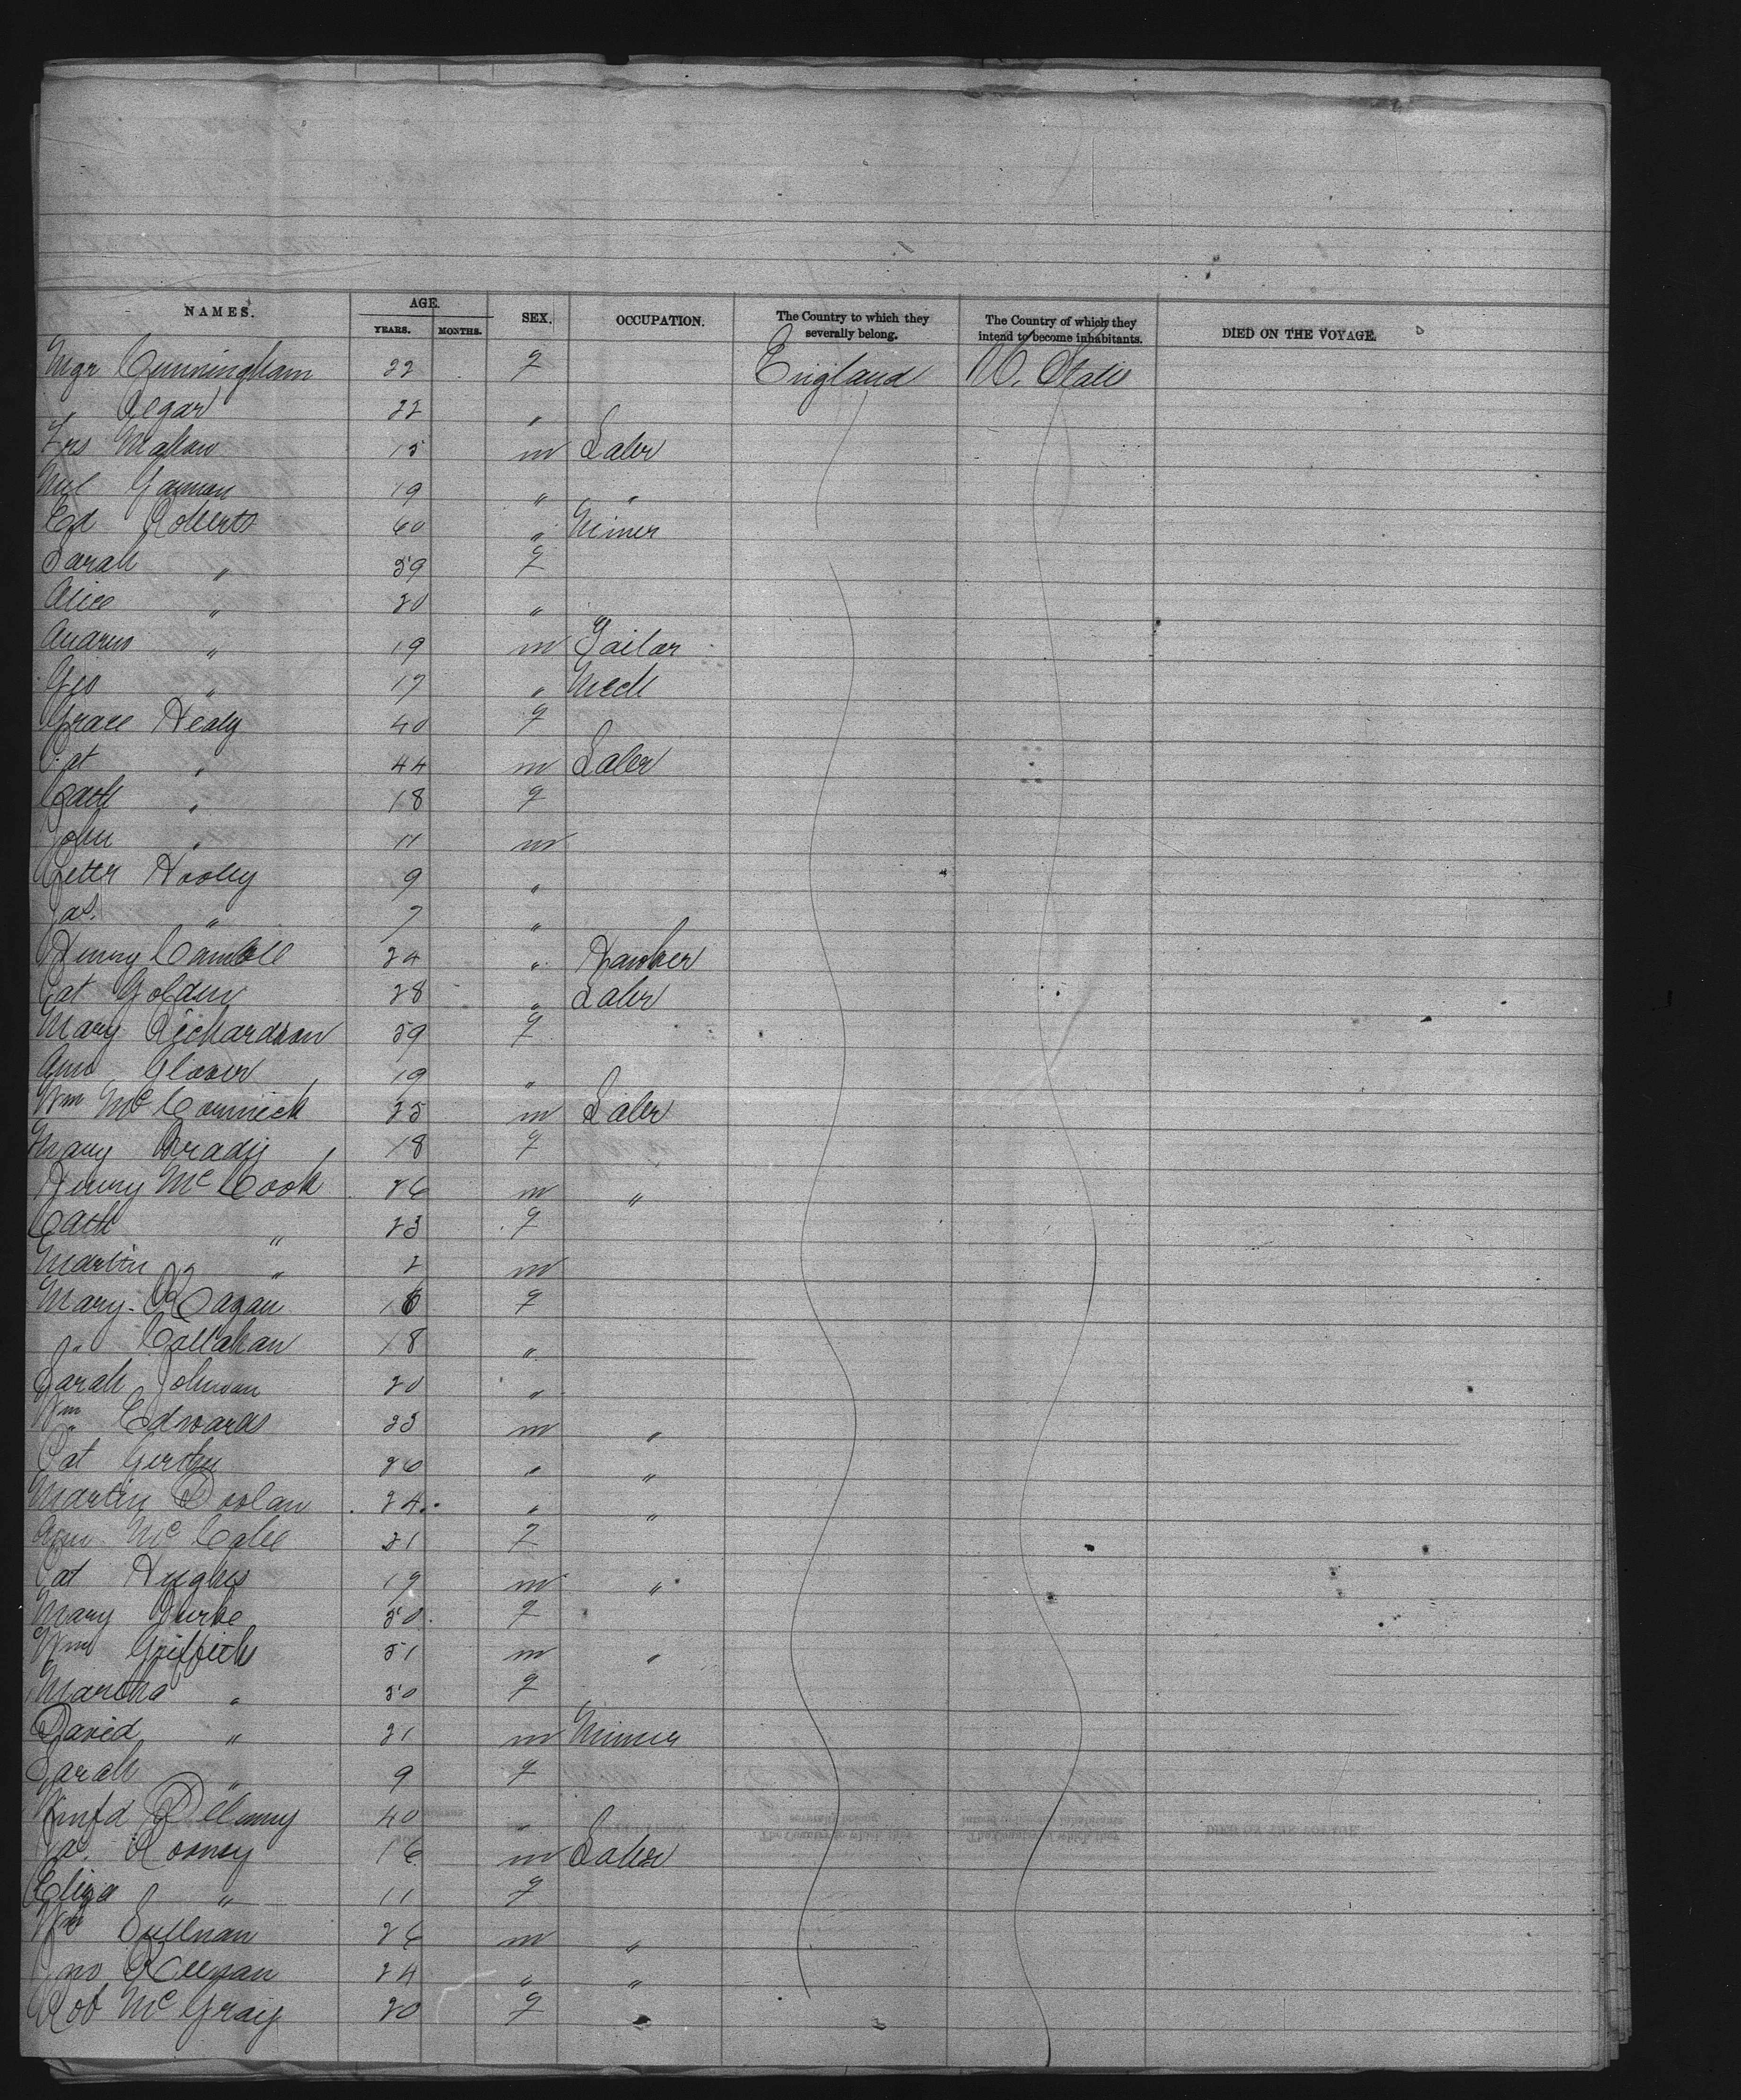 NAMES. AGE. YEARS. MONTHS. SEX. OCCUPATION. The Country to which they severally belong. The Country of which they intend to become inhabitants. DIED ON THE VOYAGE.
Mgr Cunningham 22 f England U. States
" 22 "
Frs Mahon 15 m Labr
19 " "
Ed Roberts 60 " Miner
Sarah " 59 f
Alice " 20 "
Andrew " 19 m Tailor
Geo " 17 " Mech
Grace Healy 40 f
Pat " 44 m Labr
Cath " 18 f
John " 11 m
Peter Hooley 9 "
Jas. " 7 "
Henry 24 " Hawker
Pat Golden 28 " Labr
Mary Richardson 59 f
Ann Glover 19 "
Wm McCormick 25 m Labr
Mary Brady 18 f
Henry McCook 26 m "
Cath " 23 f
Martin " 2 m
Mary 16 f
" Callahan 18 "
Sarah Johnson 20 "
Wm Edwards 23 m "
Pat 26 " "
Martin Doolan 24 " "
Ann McCabe 21 f
Pat Hughes 19 m "
Mary Burke 50 f
Wm Griffith 51 m "
Martha " 50 f
David " 21 m Miner
Sarah " 9 f
Delaney 40 "
Jas. Rooney 16 m Labr
Eliza " 11 f
Wm Sullivan 26 m "
Jno Keenan 24 " "
Rob 20 f "